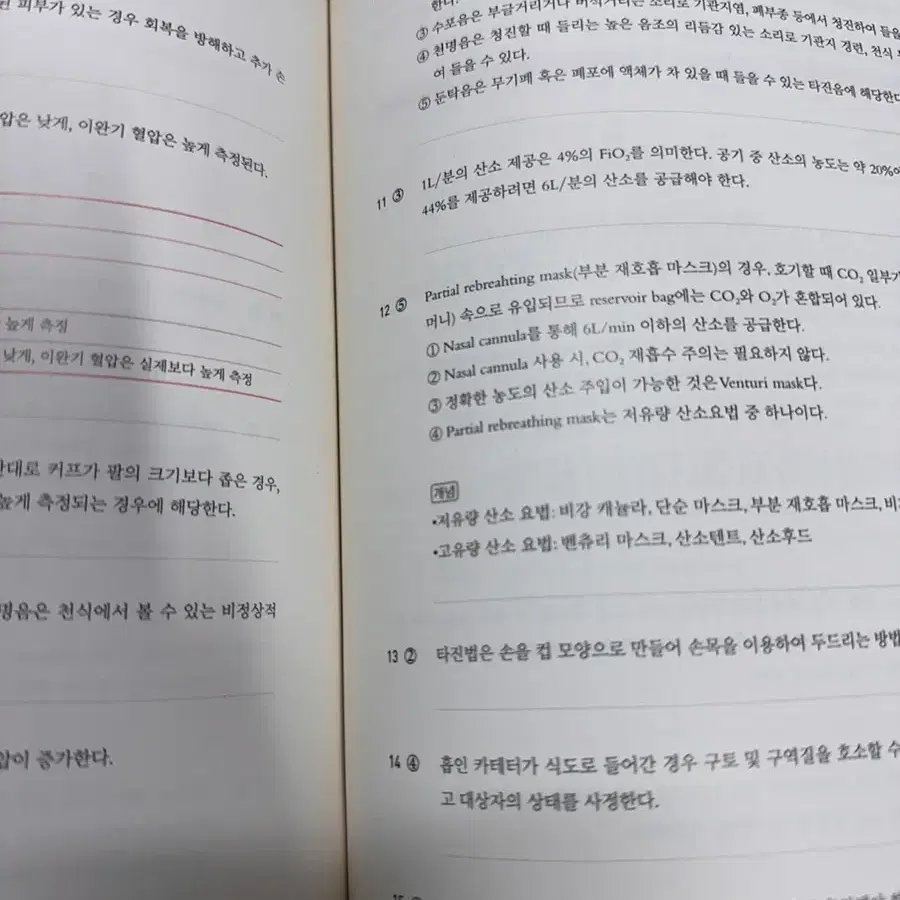 피부가 있는 경우 회복을 방해하고 추가 손
압은 낮게, 이완기 혈압은 높게 측정된다.
높게 측정
낮게, 이완기 혈압은 실제보다 높게 측정
반대로 커프가 팔의 크기보다 좁은 경우,
높게 측정되는 경우에 해당한다.
명음은 천식에서 볼 수 있는 비정상적
압이 증가한다.
한다.
③ 수포음은 부글거리거나 바삭거리는 소리로 기관지염, 폐부종 등에서 청진하여 들을
④ 천명음은 청진할 때 들리는 높은 음조의 리듬감 있는 소리로 기관지 경련, 천식
여 들을 수 있다.
⑤ 둔탁음은 무기폐 혹은 폐포에 액체가 차 있을 때 들을 수 있는 타진음에 해당한다
11 ③ 1L/분의 산소 제공은 4%의 FiO₂를 의미한다. 공기 중 산소의 농도는 약 20%
44%를 제공하려면 6L/분의 산소를 공급해야 한다.
12 ⑤ Partial rebreahting mask(부분 재호흡 마스크)의 경우, 호기할 때 CO₂ 일부가
머니) 속으로 유입되므로 reservoir bag에는 CO₂와 O₂가 혼합되어 있다.
① Nasal cannula를 통해 6L/min 이하의 산소를 공급한다.
② Nasal cannula 사용 시, CO₂ 재흡수 주의는 필요하지 않다.
③ 정확한 농도의 산소 주입이 가능한 것은 Venturi mask다.
④ Partial rebreathing mask는 저유량 산소요법 중 하나이다.
개념
•저유량 산소 요법: 비강 캐뉼라, 단순 마스크, 부분 재호흡 마스크, 비
•고유량 산소 요법: 벤츄리 마스크, 산소텐트, 산소후드
13 ② 타진법은 손을 컵 모양으로 만들어 손목을 이용하여 두드리는 방법
14 ④ 흡인 카테터가 식도로 들어간 경우 구토 및 구역질을 호소할 수
고 대상자의 상태를 사정한다.
15